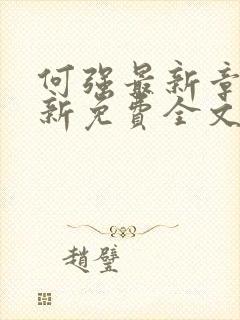 何强最新章
新免費全文
趙璧